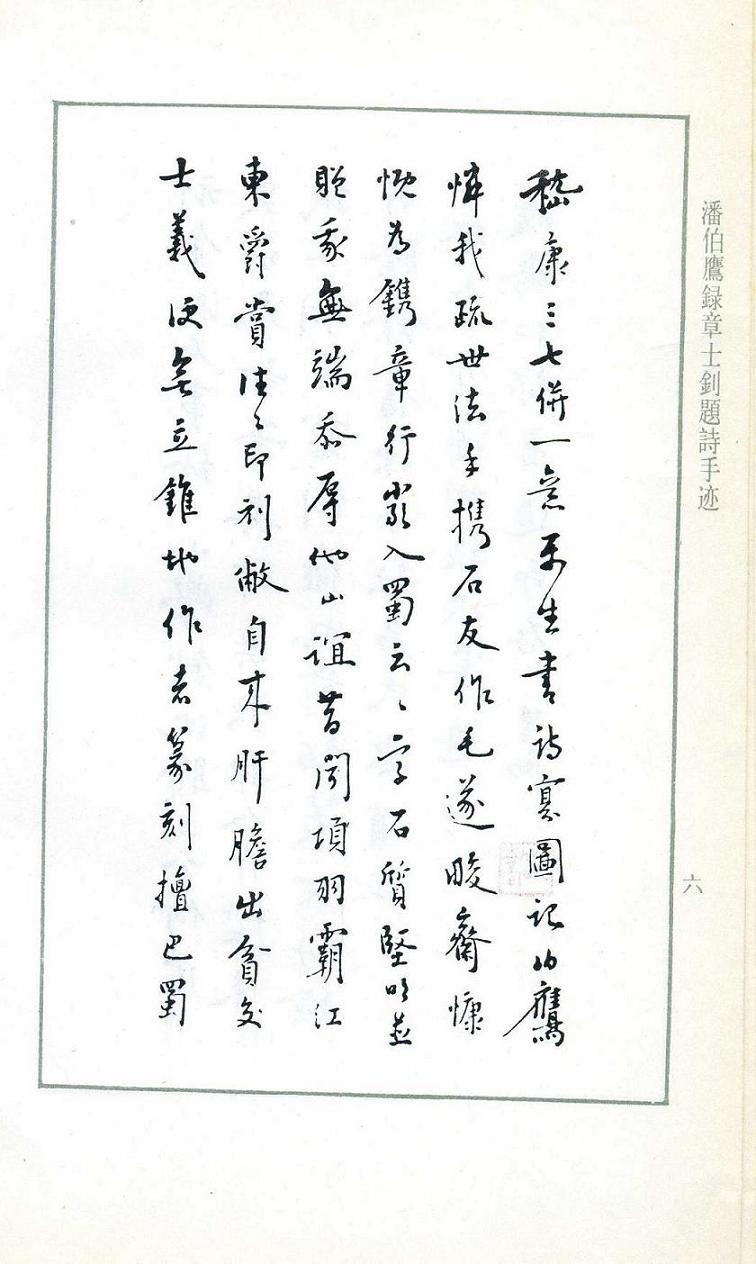 潘伯鷹録章士釗題詩手迹
六
嵇康三七併一意平生書詩寔圖記伯鷹
憐我疏世法手携石友作毛遂晙齋慷
慨為鐫章行嚴入蜀云云字石質堅明並
貺我無端忝辱他山誼昔聞項羽霸江
東爵賞往往印刓敝自來肝膽出貧交
士義使無立錐地作者篆刻擅巴蜀